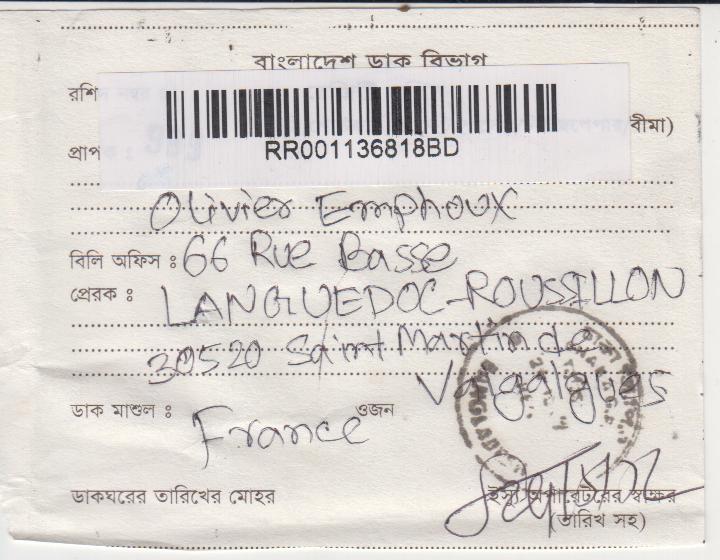 বাংলাদেশ ডাক বিভাগ
রশি
বীমা)
RR001136818BD
প্রাপ
Olivier Emphoux
বিলি অফিস : 66 Rue Basse
প্রেরক : LANGUEDOC-ROUSSILLON
30520 Saint Martin de
Valgalgues
ডাক মাশুল : ওজন
France
ডাকঘরের তারিখের মোহর ইস্যু অপারেটরের স্বাক্ষর
(তারিখ সহ)